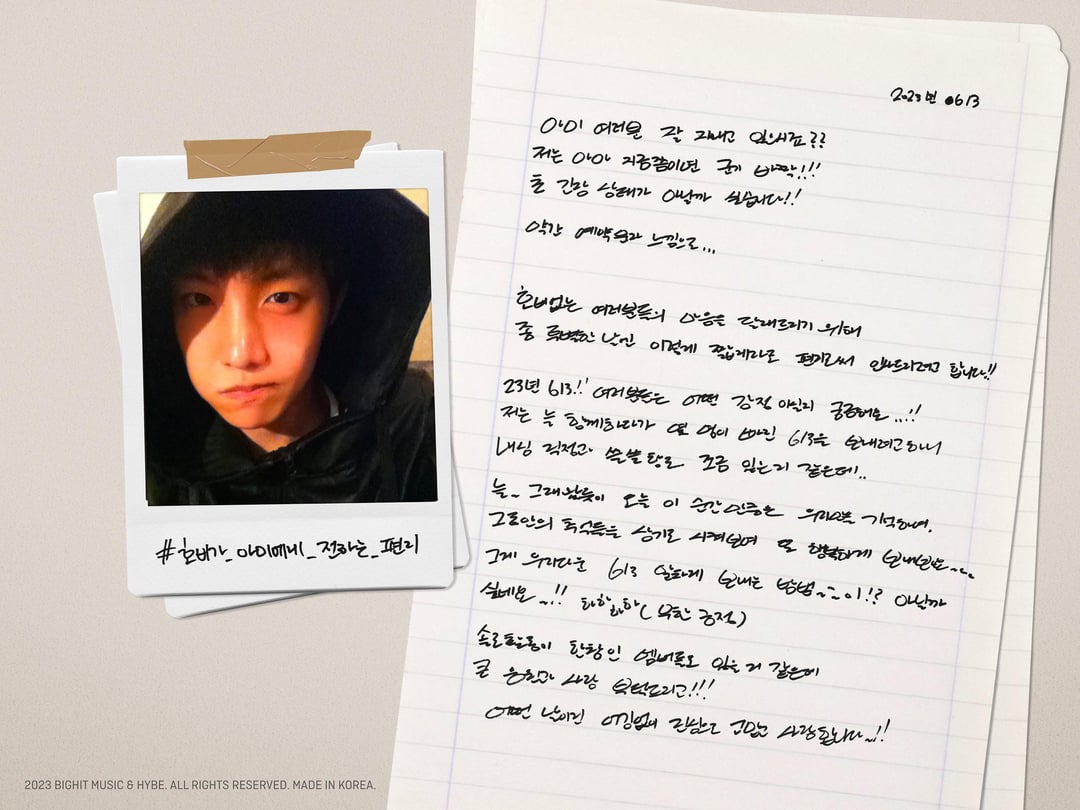 2023년 0613
아미 여러분 잘 지내고 있으시죠??
저는 아마 지금쯤이면 군기 바짝!!!
초 긴장 상태가 아닐까 싶습니다!!
약간 예약문자 느낌으로...
호비없는 여러분들의 마음을 달래드리기 위해
좀 특별한 날인 이렇게 짧게라도 편지로써 인사드리려고 합니다!!
23년 613!! 여러분들은 어떤 감정 이실지 궁금해요...!!
저는 늘 함께하다가 몇 명이 빠진 613을 보내려고하니
내심 걱정과 쓸쓸함도 조금 있는거 같은데!..
늘~ 그래왔듯이 오늘 이 순간만큼은 우리만을 기억하며,
그동안의 추억들을 상기 시켜보며 또 행복하게 보내봐요~~~
그게 우리다운 613 알차게 보내는 방법~~~이!? 아닐까
싶네요~!! 하하하하( 무한 긍정)
솔로활동이 한창인 멤버들도 있을 거 같은데
큰 응원과 사랑 부탁드리고!!!
어떤 날이던 어김없이 진심으로 고맙고 사랑합니다~!!
#호비가_아미에게_전하는_편지
2023 BIGHIT MUSIC & HYBE. ALL RIGHTS RESERVED. MADE IN KOREA.